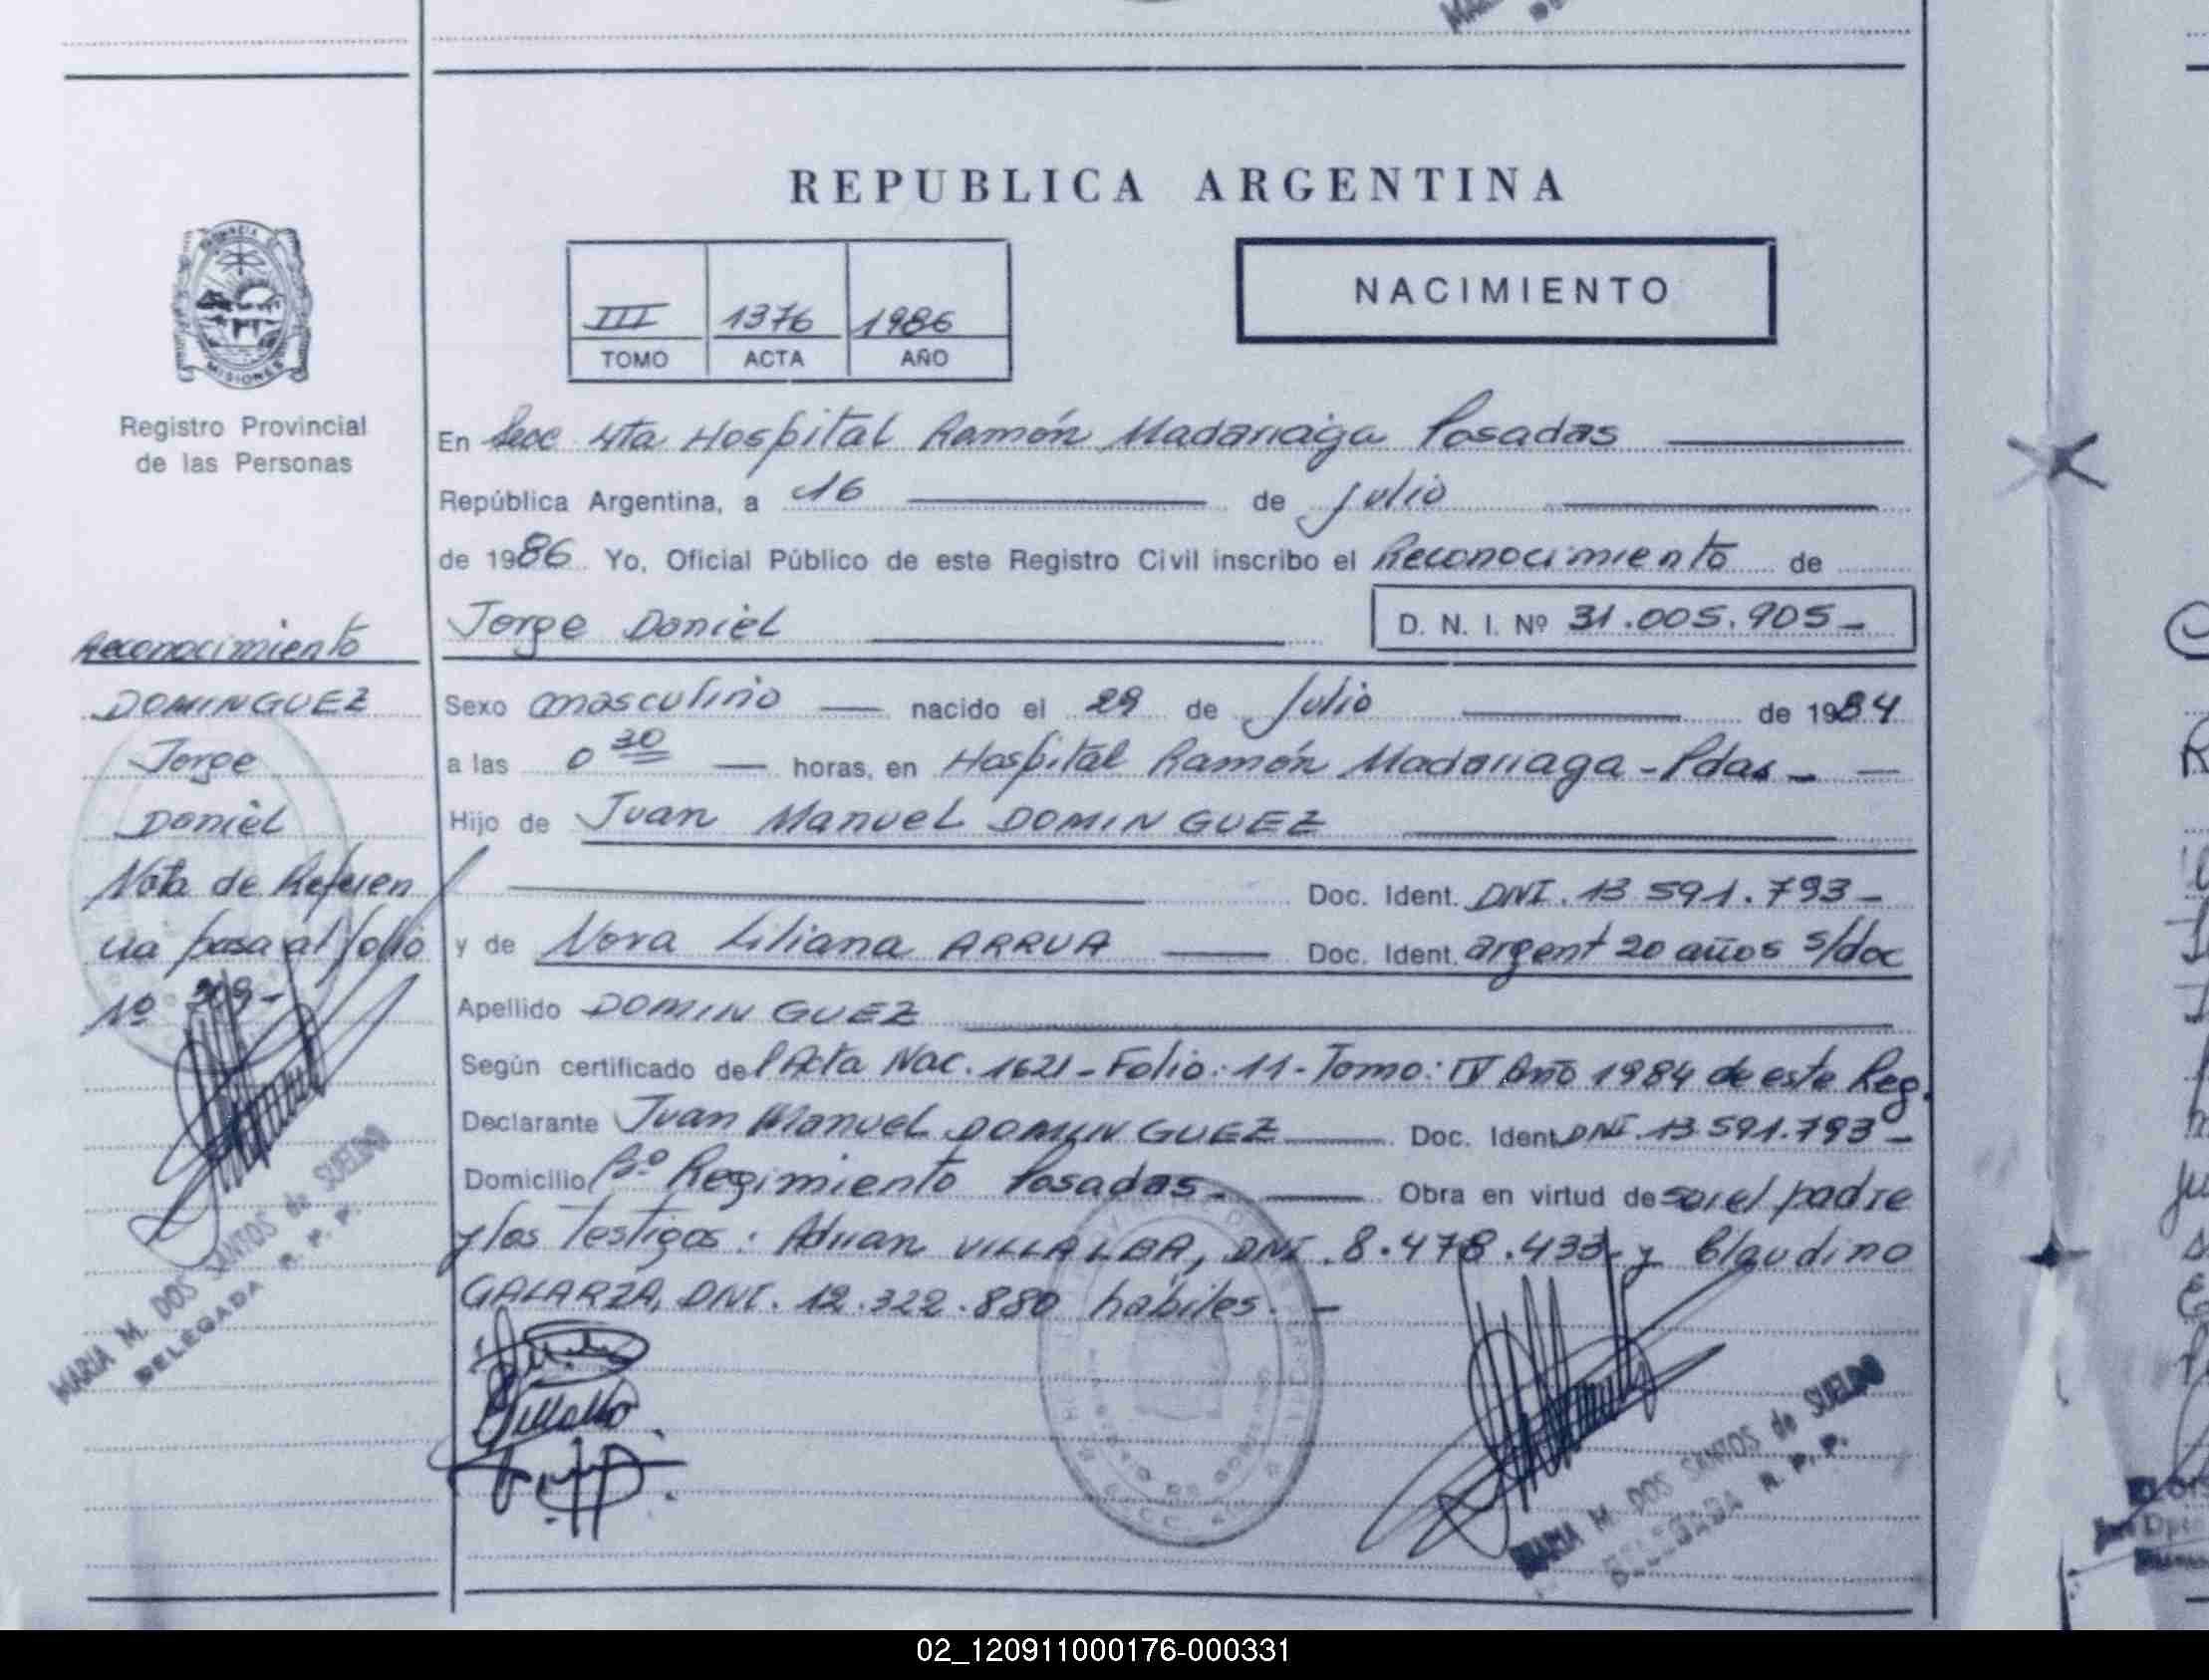 REPUBLICA ARGENTINA
III 1376 1986
TOMO ACTA AÑO
NACIMIENTO
MISIONES
Registro Provincial
de las Personas
En Secc 4ta Hospital Ramón Madariaga Posadas
República Argentina, a 16 de Julio
de 1986. Yo, Oficial Público de este Registro Civil inscribo el Reconocimiento de
Jorge Daniel D. N. I. Nº 31.005.905-
Sexo masculino nacido el 29 de Julio de 1984
a las 0 30 horas, en Hospital Ramón Madariaga - Pdas -
Hijo de Juan Manuel DOMINGUEZ
Doc. Ident. DNI. 13.591.793-
y de Nora Liliana ARRUA Doc. Ident. argent 20 años s/doc
Apellido DOMINGUEZ
Según certificado del Acta Nac. 1621 - Folio: 11 - Tomo: IV Año 1984 de este Reg.
Declarante Juan Manuel DOMINGUEZ Doc. Ident DNI. 13.591.793-
Domicilio Bº Regimiento Posadas. Obra en virtud de ser el padre
y los testigos: Adrian VILLALBA, DNI. 8.478.433. y Claudino
GALARZA, DNI. 12.322.880 hábiles. -
Reconocimiento
DOMINGUEZ
Jorge
Daniel
Nota de Referen
cia pasa al folio
Nº
MARIA M. DOS SANTOS de SUELDO
DELEGADA R. P. P.
MARIA M. DOS SANTOS de SUELDO
DELEGADA R. P. P.
02_120911000176-000331